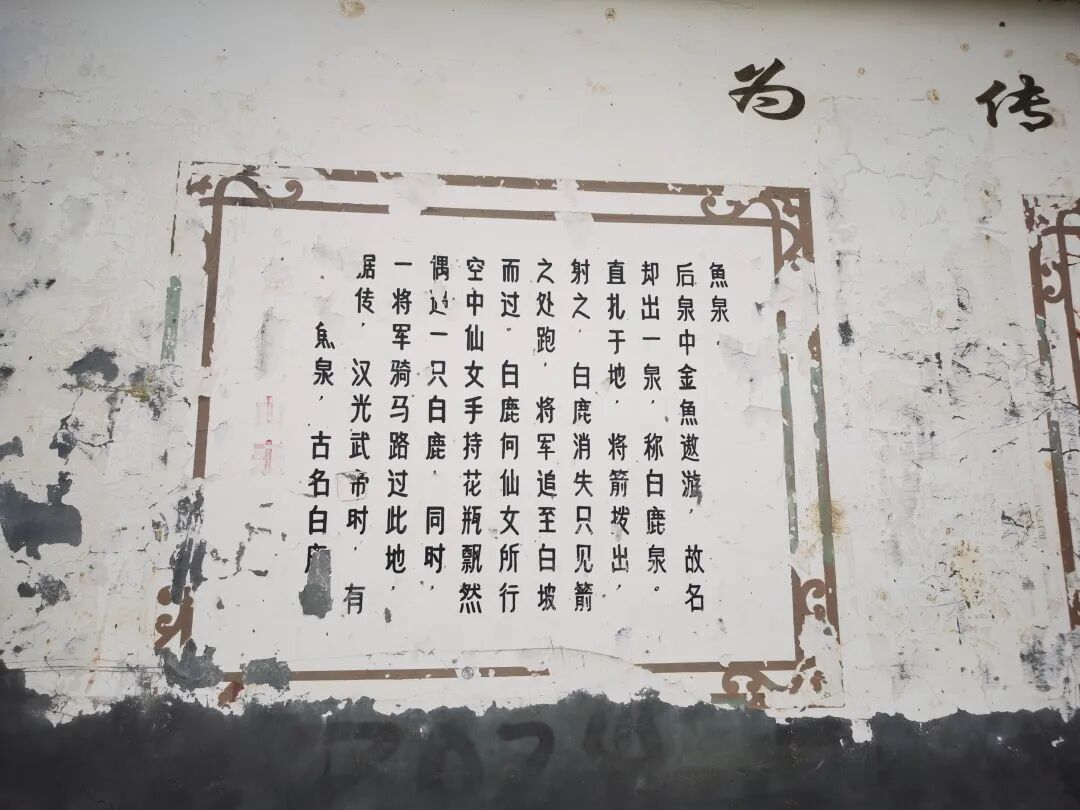 为 传
魚泉，古名白
据传，汉光武帝时，有
一将军骑马路过此地，
偶一只白鹿，同时
空中仙女手持花瓶飘然
而过。白鹿向仙女所行
之处跑，将军追至白坡
射之，白鹿消失只见箭
直扎于地，将箭拨出，
却出一泉，称白鹿泉。
后泉中金魚遨游，故名
魚泉.